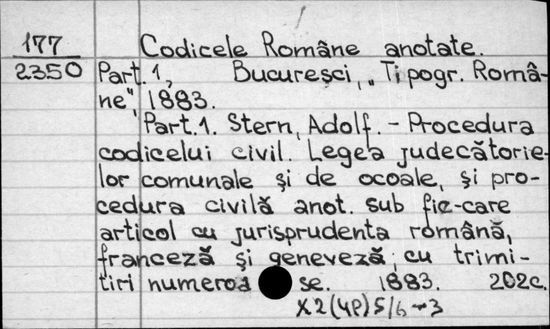 177
2350
Codicele Române anotate.
Part. 1, Bucuresci, „Tipogr. Româ-
ne", 1883.
Part.1. Stern, Adolf. - Procedura
codicelui civil. Legea judecătorie-
lor comunale și de ocoale, și pro-
cedura civilă anot. sub fie-care
articol cu jurisprudenta română,
franceză și geneveză, cu trimi-
tiri numeroa se. 1883. 202c.
X2(4P)5/6-3